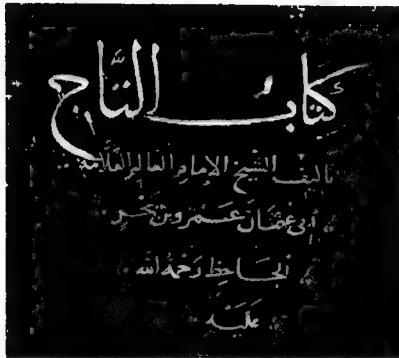 كتاب التاج
تاليف الشيخ الإمام العالم العلامة
أبى عثمان عمرو بن بحر
الجاحظ رحمة الله
عليه